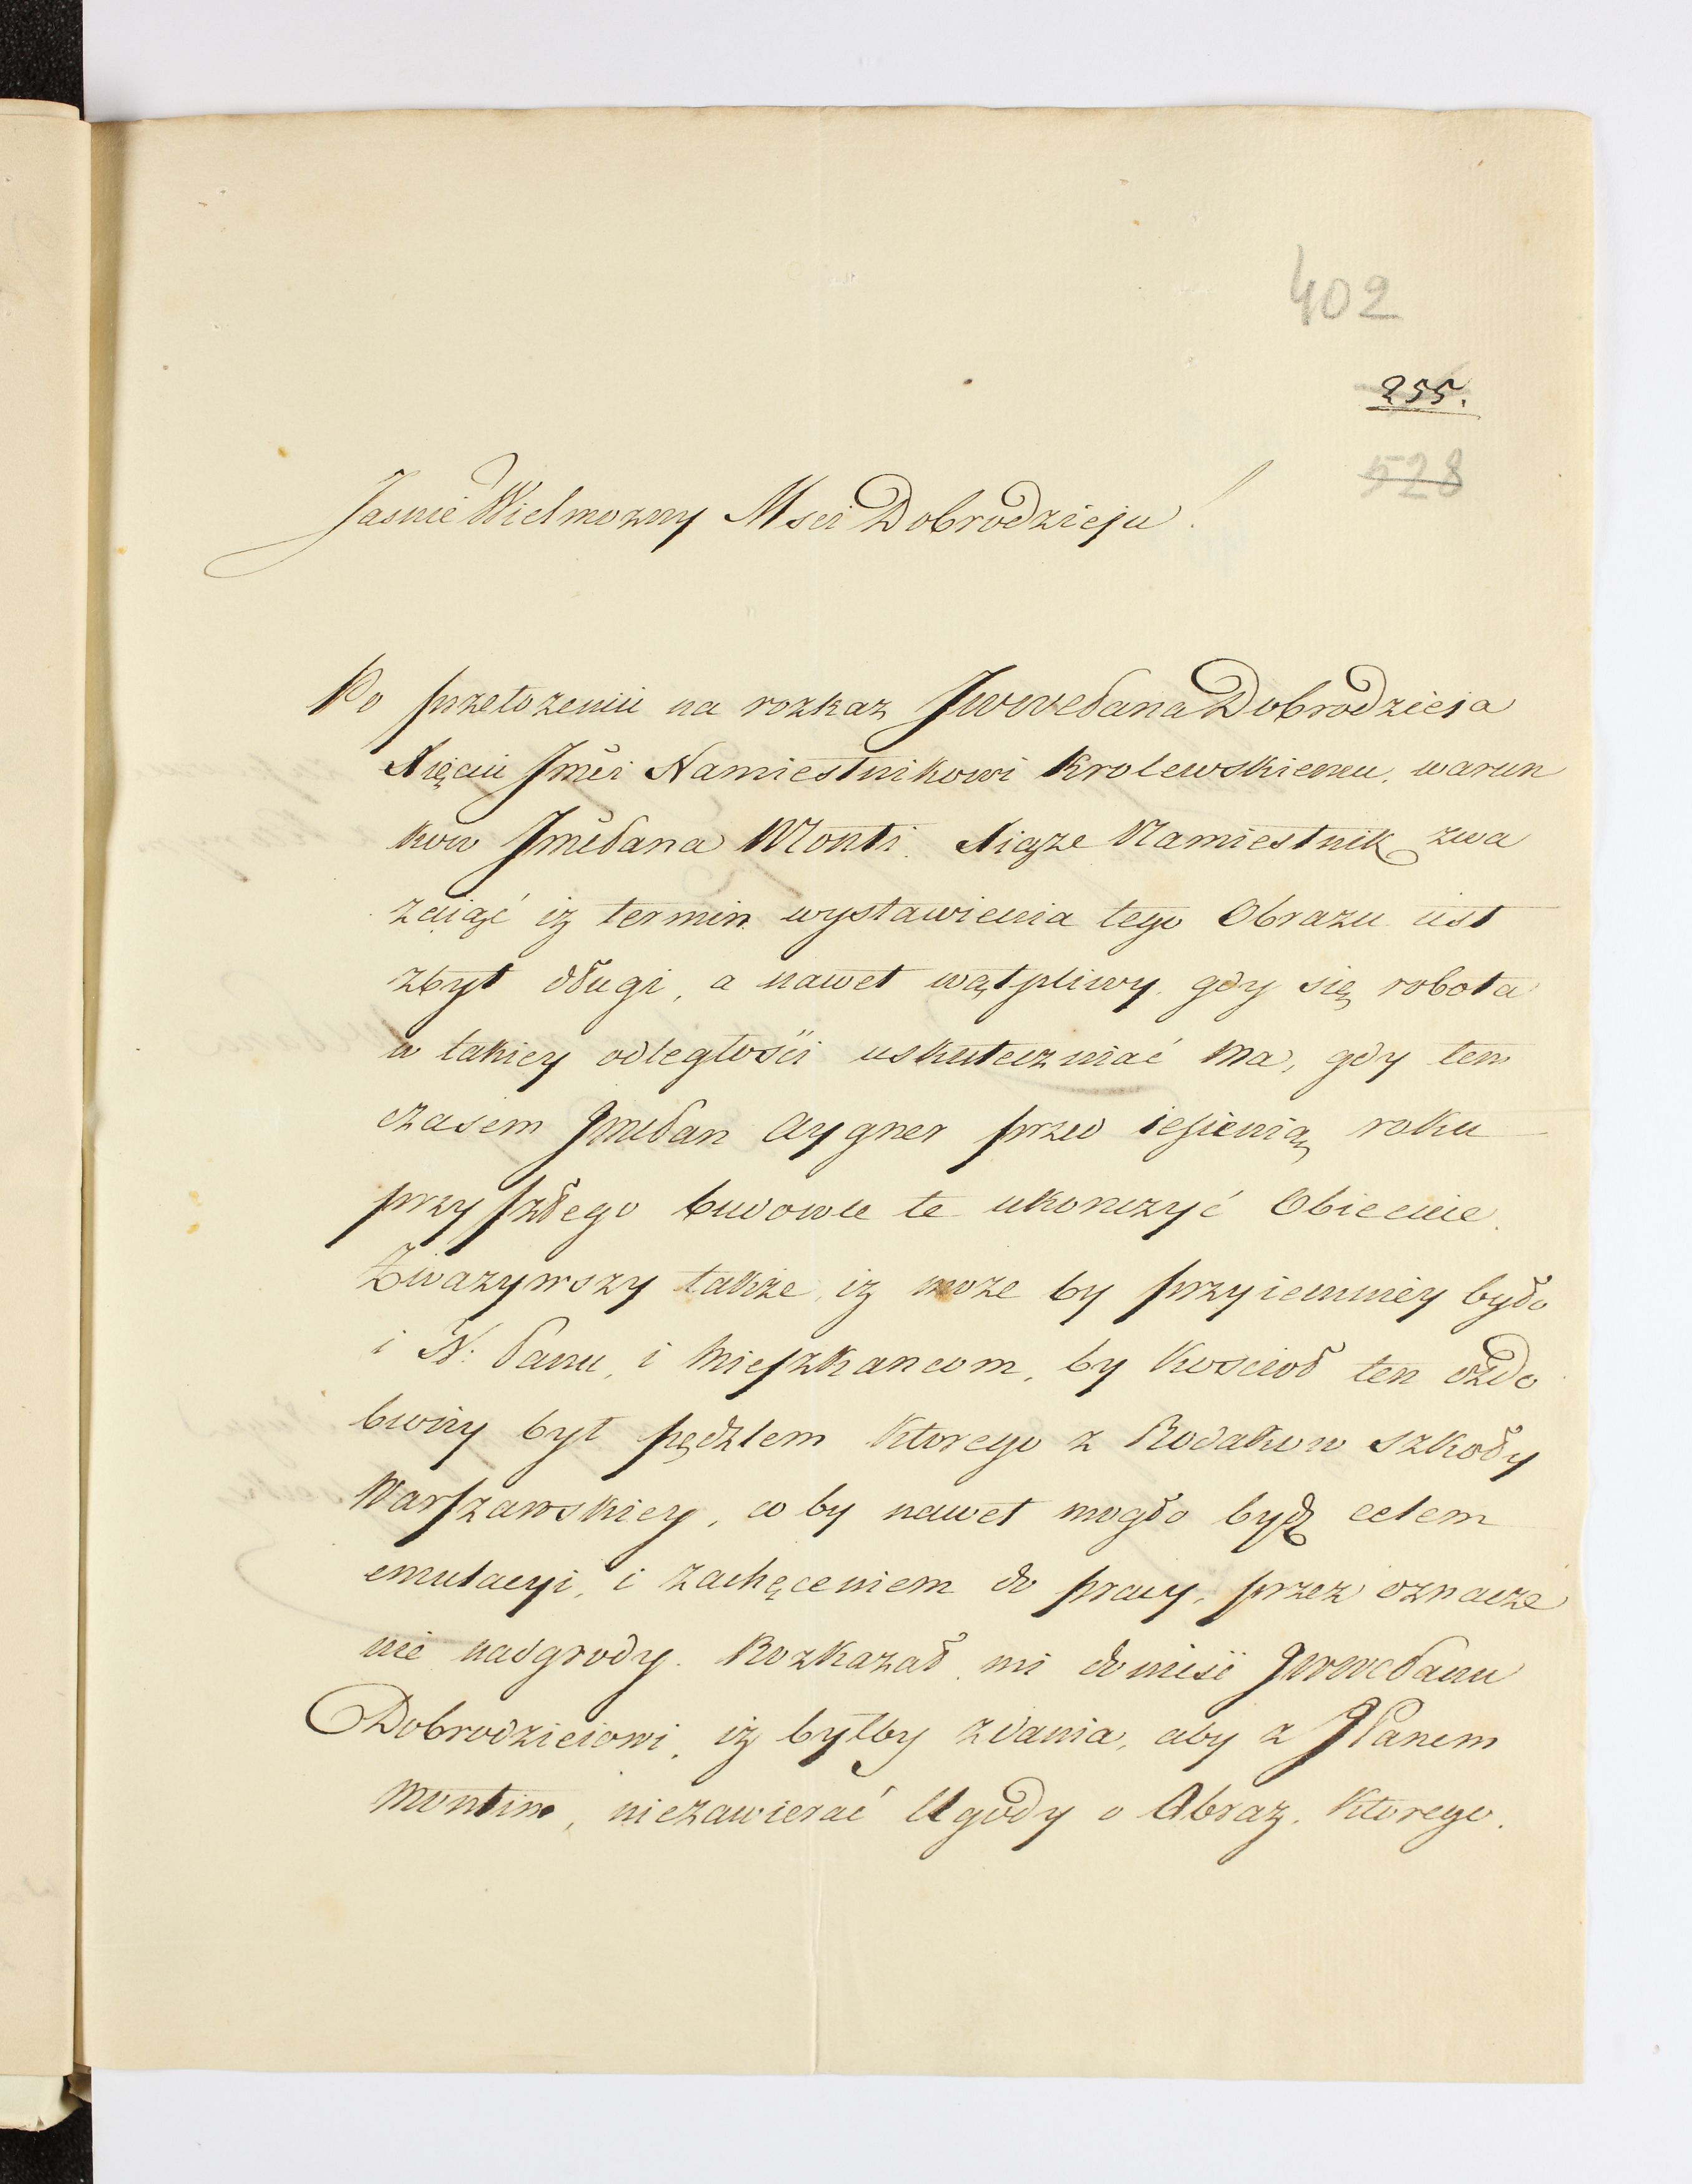 402
255.
528
Jasnie Wielmozny Msci Dobrodzieju!
Po przełozeniu na rozkaz JwwcPana Dobrodzieia
Xięciu Jmći Namiestnikowi Krolewskiemu, warun
kow JmćPana Monti. Xiąze Namiestnik zwa
zaiąć iż termin wystawienia tego Obrazu iest
zbyt długi, a nawet wątpliwy, gdy się robota
w takiey odległości uskuteczniać ma, gdy tem
czasem JmcPan Aygner przed iesienią roku
przyszłego budowle te ukonczyć Obiecuie.
Zwazywszy takze, iż moze by przyiemniey było
i N: Panu, i Mieszkancom, by Koscioł ten ozdo
biony był pędzlem Ktorego z Rodakow szkoły
Warszawskiey, co by nawet mogło bydź celem
emulacyi, i zachęceniem do pracy, przez oznacze
nie nadgrody. Rozkazał mi donieść JwwcPanu
Dobrodzieiowi, iż byłby zdania, aby z JPanem
Montim, niezawierać Ugody o Obraz, Ktorego.